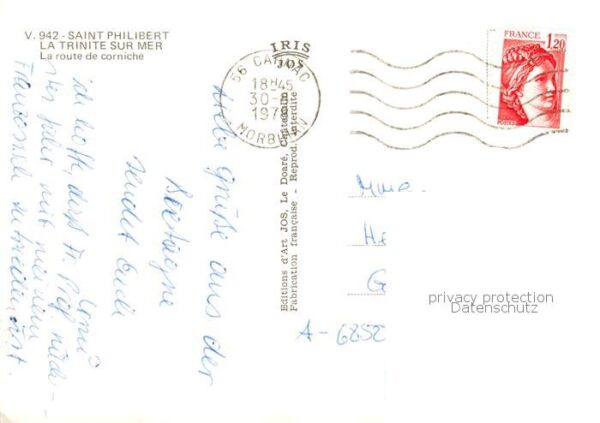 V. 942 - SAINT PHILIBERT
LA TRINITE SUR MER
La route de corniche
IRIS
JOS
56 CARNAC
18H45
30-
197
MORBIHAN
FRANCE
1,20
POSTES
Editions d'Art JOS, Le Doaré, Châteaulin
Fabrication française - Reprod. interdite
Liebe Grüße aus der
Bretagne
sendet Euch
ich hoffe, daß
mit meinem
Französisch zufrieden bist.
Mme.
He
G
A-6252
privacy protection
Datenschutz